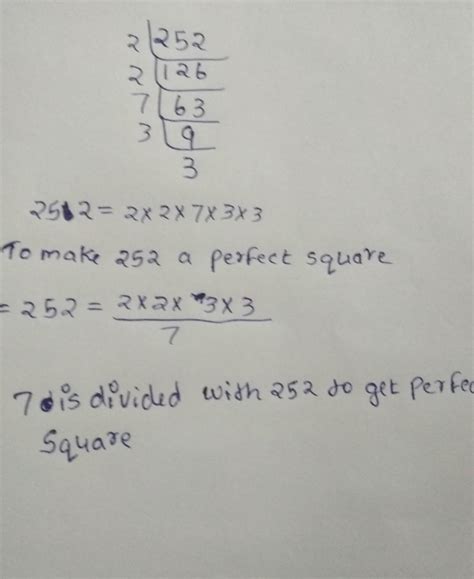 2 | 252
2 | 126
7 | 63
3 | 9
3
252 = 2×2×7×3×3
To make 252 a perfect square
= 252 = 2×2× 3×3
7
7 is divided with 252 to get perfec
Square